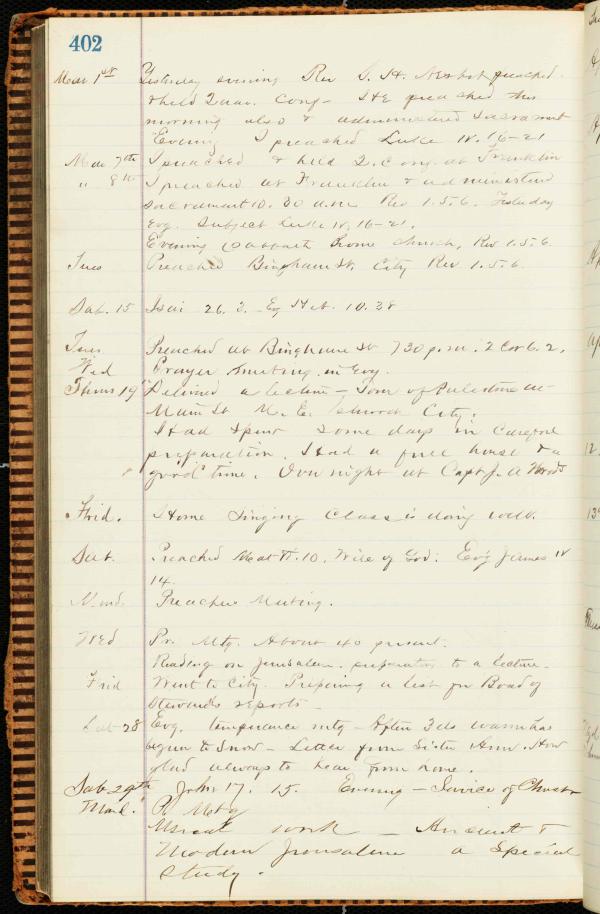 402
Mar 1st Yesterday evening Rev S. H. Nesbit preached
& held Quar. Conf - He preached this
morning also & administered Sacrament
Evening I preached Luke 18. 16-21
Mar 7th I preached & held Q. Conf at Franklin
" 8th I preached at Franklin & administered
Sacrament 10.30 a.m. Rev 1.5.6. Yesterday
Evg. Subject Luke 18, 16-21.
Evening Sabbath Home Church, Rev 1.5.6.
Tues Preached Bingham St. City Rev 1.5.6.
Sab. 15 Isai 26. 3. - Evg Heb. 10.38
Tues Preached at Bingham St 7 30 p.m. 2 Cor 6.2.
Wed Prayer meeting in Evg.
Thurs 19" Delivered a lecture - Tour of Palestine at
Main St M. E. Church City.
Had spent some days in careful
preparation. Had a full house & a
good time. Over night at Capt J. A Woods
Frid. Home Singing Class is doing well.
Sab. Preached Mat 6.10. Will of God. Evg James
14.
Mond. Preachers Meeting.
Wed Pr. Mtg. About 40 present.
Reading on Jerusalem. preparatory to a lecture.
Frid Went to City. Preparing a list for Board of
Stewards reports -
Sat 28 Evg. temperance mtg - After 3 ds warm has
begun to snow - Letter from Sister Ann. How
glad always to hear from home.
Sab. 29th John 17. 15. Evening - Service of Christ
Mond. Pr Mtg
Usual work - Ancient &
Modern Jerusalem a Special
Study.